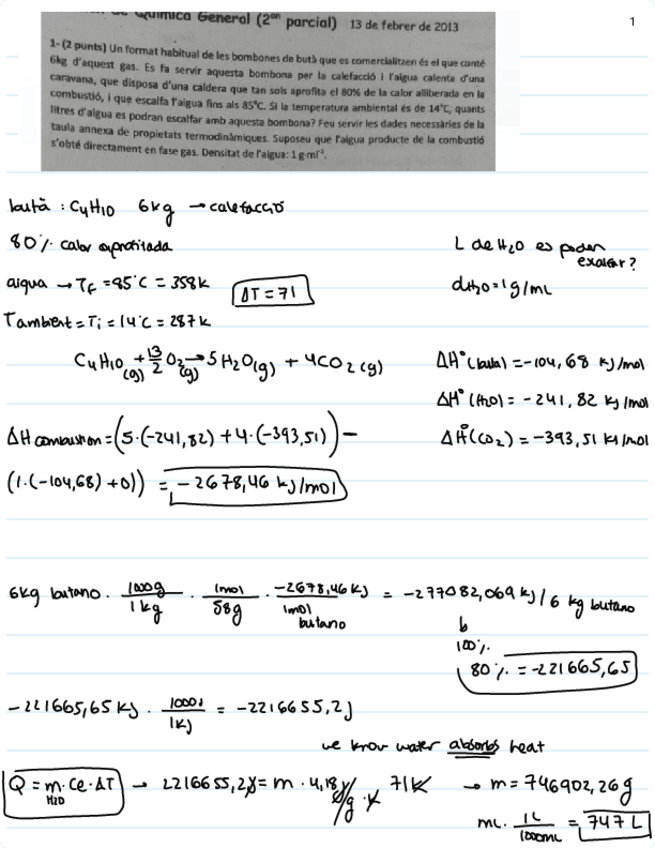 Química General (2ᵒⁿ parcial) 13 de febrer de 2013
1
1- (2 punts) Un format habitual de les bombones de butà que es comercialitzen és el que conté
6kg d'aquest gas. Es fa servir aquesta bombona per la calefacció i l'aigua calenta d'una
caravana, que disposa d'una caldera que tan sols aprofita el 80% de la calor alliberada en la
combustió, i que escalfa l'aigua fins als 85°C. Si la temperatura ambiental és de 14°C, quants
litres d'aigua es podran escalfar amb aquesta bombona? Feu servir les dades necessàries de la
taula annexa de propietats termodinàmiques. Suposeu que l'aigua producte de la combustió
s'obté directament en fase gas. Densitat de l'aigua: 1 g·ml⁻¹.
butà : C4H10 6kg → calefacció
80% calor aprofitada
L de H2O es poden
escalfar?
aigua → Tf = 85°C = 358K
ΔT = 71
dH2O = 1g/mL
Tambient = Ti = 14°C = 287K
C4H10 (g) + 13/2 O2 (g) → 5H2O(g) + 4CO2(g)
ΔH° (butà) = -104,68 kJ/mol
ΔH° (H2O) = -241,82 kJ/mol
ΔH° (CO2) = -393,51 kJ/mol
ΔH combustion = (5·(-241,82) + 4·(-393,51)) -
(1·(-104,68) + 0)) = -2678,46 kJ/mol
6kg butano · 1000g/1kg · 1mol/58g · -2678,46 kJ/1mol butano = -277082,069 kJ/6 kg butano
100%
80% = -221665,65
-221665,65 kJ · 1000J/1kJ = -2216655,2J
we know water absorbs heat
Q = m·Ce·ΔT → 2216655,2J = m · 4,18 J/g·K 71K → m = 746902,26g
H2O
mL · 1L/1000mL = 747 L